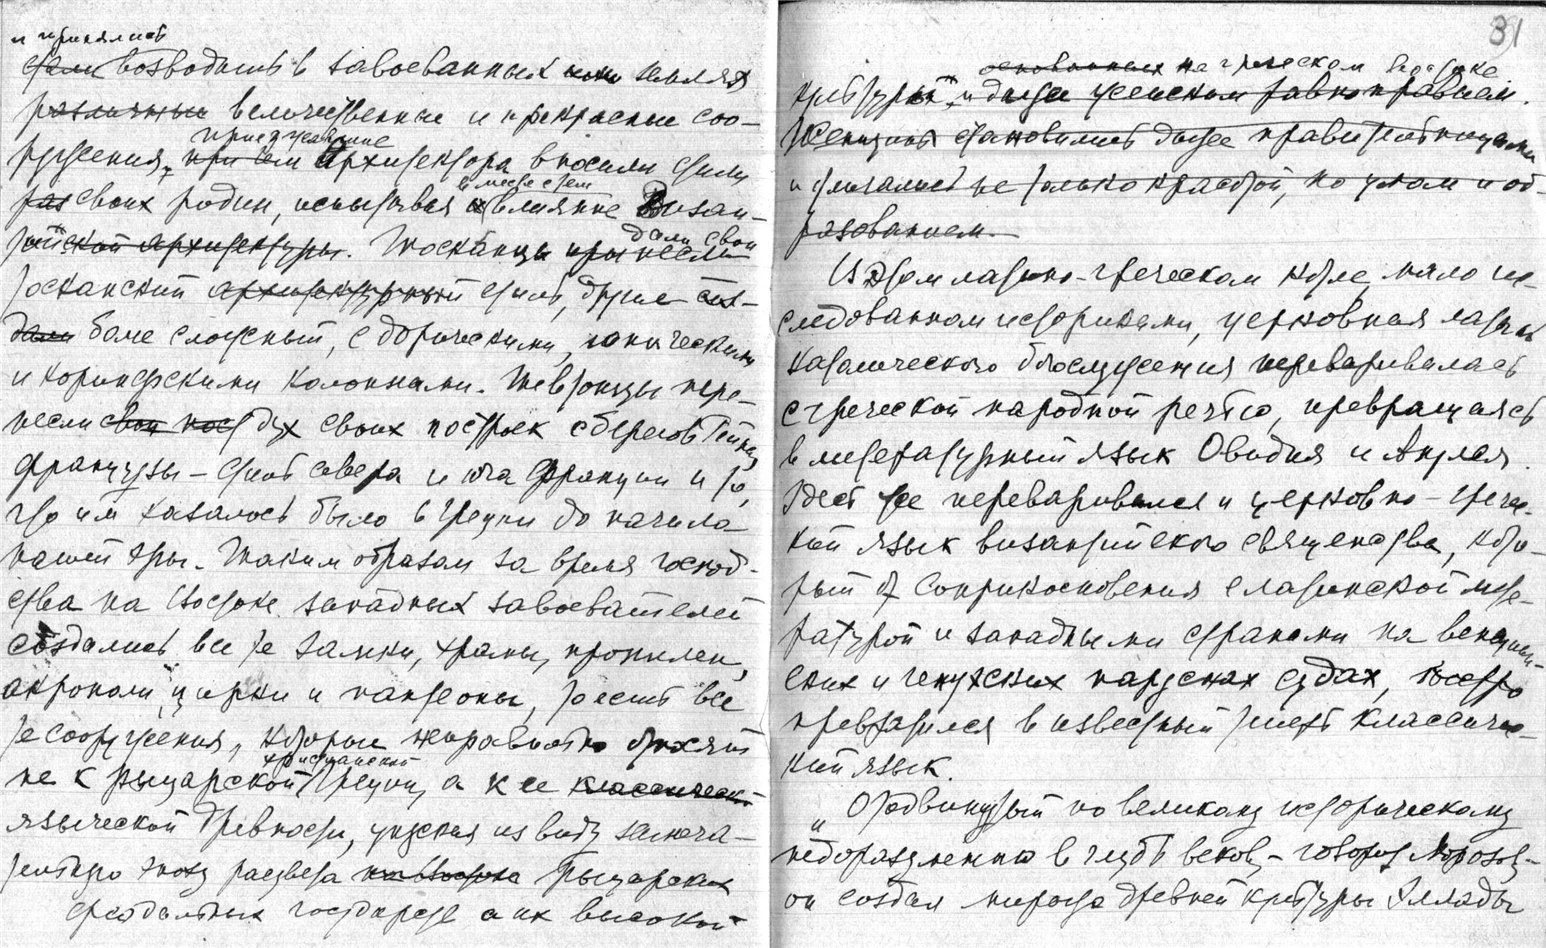 и принялись
стали возводить в завоеванных ими землях
различные величественные и прекрасные соо-
приезжавшие
ружения, при чем Архитектора вносили стиль
вместе с тем
раз своих родин, испытывая и влияние Визан-
дали свой
тийской архитектуры. Тосканцы принесли
тосканский архитектурный стиль, другие соз-
дали более сложный, с дорическими, ионическими
и коринфскими колоннами. Тевтонцы пере-
несли свои дух своих построек с берегов Рейна,
французы – стиль севера и юга Франции и то,
что им казалось было в Греции до начала
нашей эры. Таким образом за время господ-
ства на Востоке западных завоевателей
создались все те замки, храмы, пропилеи,
акрополи, цирки и пантеоны, то есть все
те сооружения, которые неправильно относят
христианской
не к рыцарской Греции, а к ее классической
языческой древности, упуская из виду замеча-
тельную эпоху расцвета на Востоке Рыцарских
феодальных государств с их высокой
31
основанных на греческом востоке
культурой и даже женским равноправием.
Женщины становились даже правительницами
и отличались не только красотой, но умом и об-
разованием.
В этом латино-греческом котле, мало ис-
следованном историками, церковная латынь
католического богослужения переваривалась
с греческой народной речью, превращаясь
в литературный язык Овидия и Апулея.
Здесь же переваривался и церковно-гречес-
кий язык византийского священства, кото-
рый от соприкосновения с латинской лите-
ратурой и западными странами на венециан-
ских и генуэзских парусных судах, быстро
превратился в известный классичес-
кий язык.
„Отодвинутый по великому историческому
недоразумению в глубь веков, – говорит Морозов, –
он создал мираж древней культуры Эллады